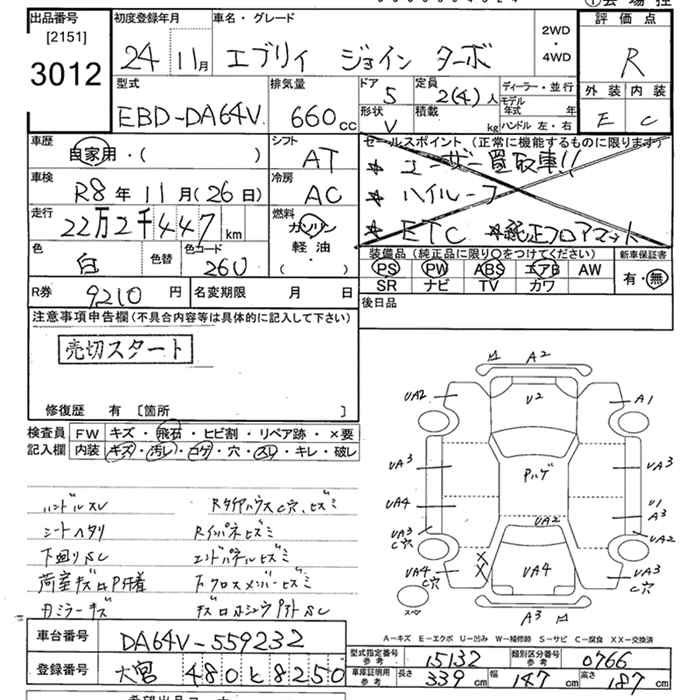 出品番号
[2151]
3012
初度登録年月
24 11月
車名・グレード
エブリイ ジョイン ターボ
2WD
・
4WD
評価点
R
外装 内装
E C
型式
EBD-DA64V
排気量
660cc
ドア
5
形状
V
定員
2(4)人
積載
kg
ディーラー・並行
モデル年式 年
ハンドル 左・右
車歴
自家用・( )
シフト
AT
車検
R8年11月(26日)
冷房
AC
走行
22万2千447km
燃料
ガソリン
軽油・
( )
色
白
色替
色コード
26U
セールスポイント(正常に機能するものに限ります)
* ユーザー買取車!!
* ハイルーフ
* ETC *純正フロアマット
装備品(純正品に限り○をつけてください)
PS PW ABS エアB AW
SR ナビ TV カワ
新車保証書
有・無
R券
9210円
名変期限 月 日
後日品
注意事項申告欄(不具合内容等は具体的に記入して下さい)
売切スタート
修復歴 有 [箇所 ]
検査員記入欄
FW キズ・飛石・ヒビ割・リペア跡・×要
内装 キズ・汚レ・コゲ・穴・スレ・キレ・破レ
ハンドルスレ
シートヘタリ
下廻りSC
Rインパネヒズミ
エンドパネルヒズミ
下クロスメンバーヒズミ
Fミラーキズ
A2
UA2
U2
A1
UA3
Pハゲ
UA3
UA4
U1
A3
UA3
C穴
UA2
UA2
UA4
C穴
XX
UA4
UA3
C穴
スペ
A3
A-キズ E-エクボ U-凹み W-補修跡 S-サビ C-腐食 XX-交換済
車台番号
DA64V-559232
登録番号
大宮 480 と 8250
型式指定番号
参考
15132
類別区分番号
参考
0766
車庫証明用
参考
長さ 339cm 幅 147cm 高さ 187cm